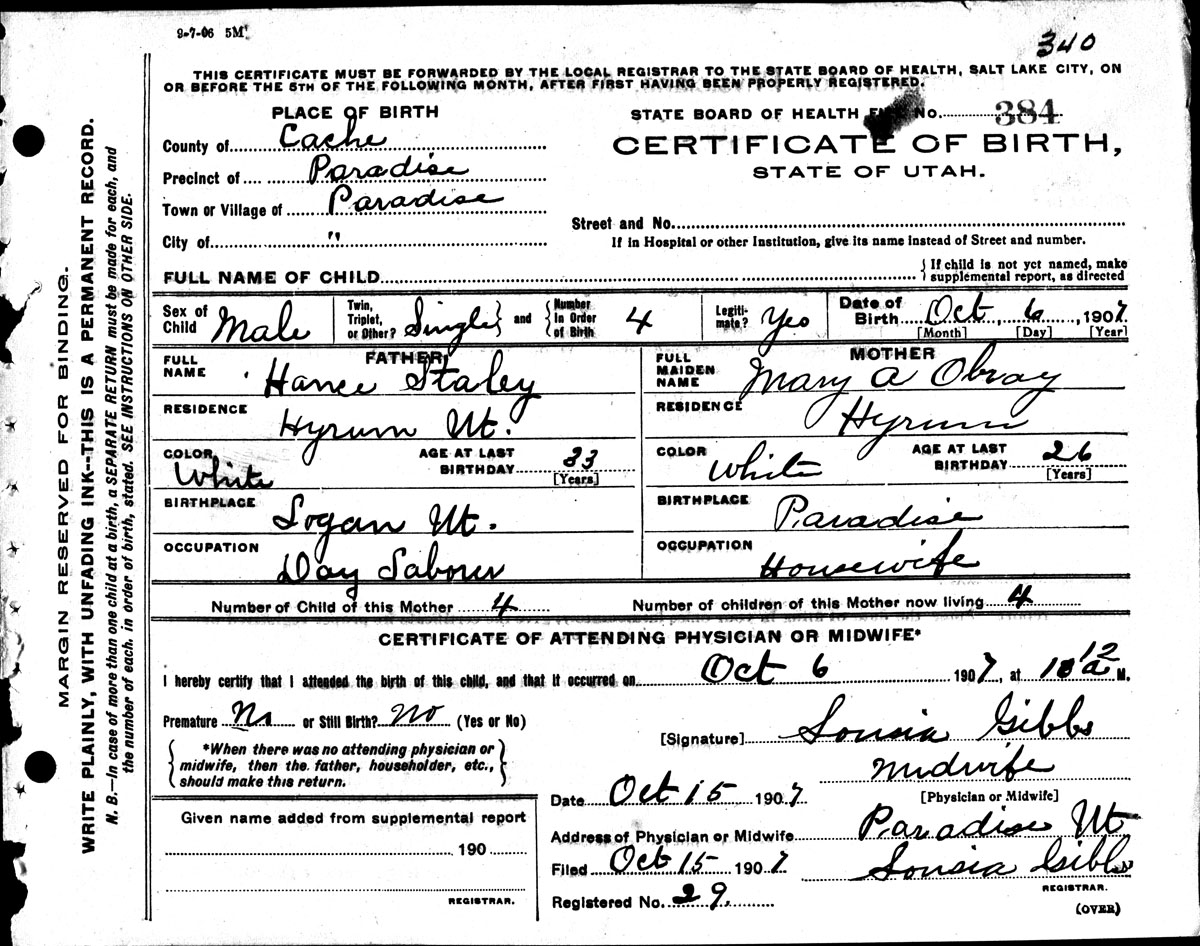 9-7-06 5M
340
THIS CERTIFICATE MUST BE FORWARDED BY THE LOCAL REGISTRAR TO THE STATE BOARD OF HEALTH, SALT LAKE CITY, ON
OR BEFORE THE 5TH OF THE FOLLOWING MONTH, AFTER FIRST HAVING BEEN PROPERLY REGISTERED.
PLACE OF BIRTH
County of Cache
Precinct of Paradise
Town or Village of Paradise
City of "
STATE BOARD OF HEALTH No. 384
CERTIFICATE OF BIRTH,
STATE OF UTAH.
Street and No.
If in Hospital or other Institution, give its name instead of Street and number.
FULL NAME OF CHILD
{ If child is not yet named, make
supplemental report, as directed
Sex of Child Male
Twin, Triplet, or Other? Single } and { Number In Order of Birth 4
Legiti-mate? Yes
Date of Birth Oct 6, 1907
[Month] [Day] [Year]
FATHER
FULL NAME Hance Staley
RESIDENCE Hyrum Ut.
COLOR White AGE AT LAST BIRTHDAY 33 [Years]
BIRTHPLACE Logan Ut.
OCCUPATION Day Laborer
MOTHER
FULL MAIDEN NAME Mary A Obray
RESIDENCE Hyrum
COLOR White AGE AT LAST BIRTHDAY 26 [Years]
BIRTHPLACE Paradise
OCCUPATION Housewife
Number of Child of this Mother 4 Number of children of this Mother now living 4
CERTIFICATE OF ATTENDING PHYSICIAN OR MIDWIFE*
I hereby certify that I attended the birth of this child, and that it occurred on Oct 6 1907, at 12 a M.
Premature No or Still Birth? No (Yes or No)
{ *When there was no attending physician or
midwife, then the father, householder, etc.,
should make this return. }
[Signature] Gibbs
Midwife
[Physician or Midwife]
Date Oct 15 1907
Address of Physician or Midwife Paradise Ut
Filed Oct 15 1907 Gibbs
REGISTRAR.
Registered No. 29.
(OVER)
Given name added from supplemental report
190
REGISTRAR.
MARGIN RESERVED FOR BINDING.
WRITE PLAINLY, WITH UNFADING INK--THIS IS A PERMANENT RECORD.
N. B.—In case of more than one child at a birth, a SEPARATE RETURN must be made for each, and
the number of each, in order of birth, stated. SEE INSTRUCTIONS ON OTHER SIDE.